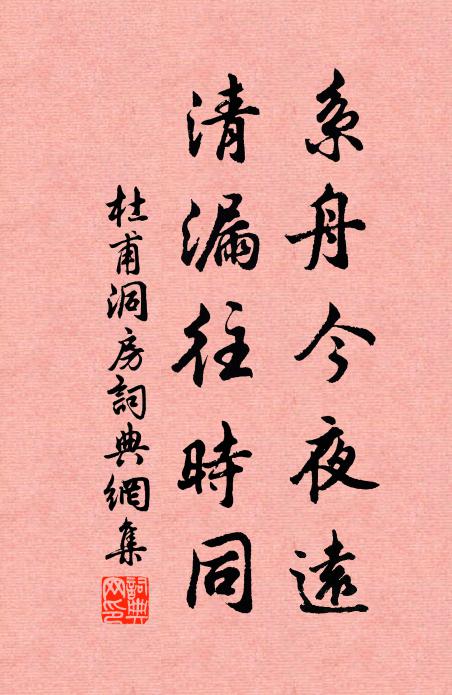 系舟今夜遠
清漏往時同
杜甫洞房詞典網集
詞典網印